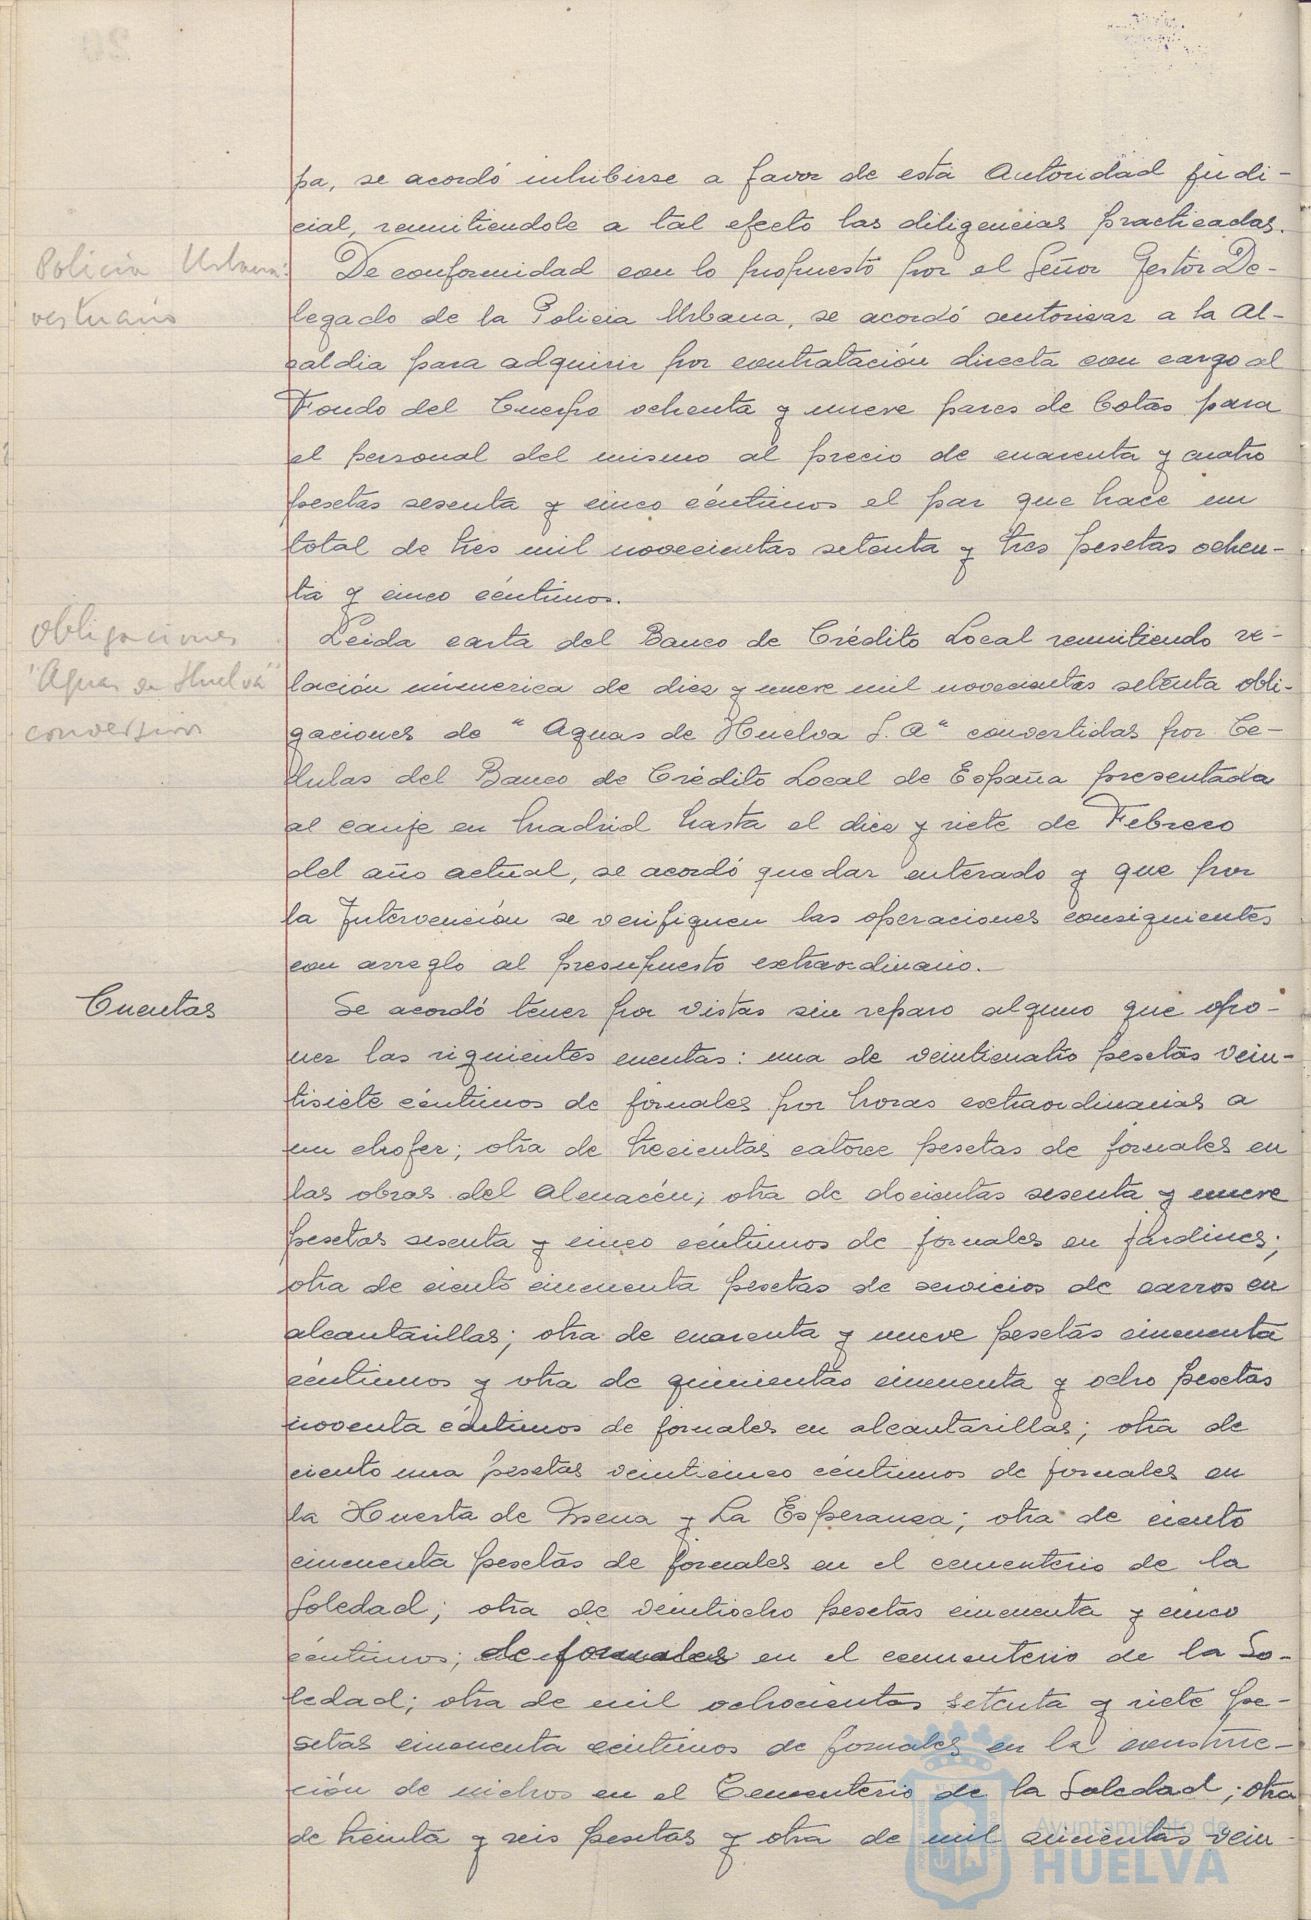 pa, se acordó inhibirse a favor de esta Autoridad judi-
cial, remitiendole a tal efecto las diligencias practicadas.
Policia Urbana: vestuario
De conformidad con lo propuesto por el Señor Gestor De-
legado de la Policia Urbana, se acordó autorizar a la Al-
caldia para adquirir por contratación directa con cargo al
Fondo del Cuerpo ochenta y nueve pares de botas para
el personal del mismo al precio de cuarenta y cuatro
pesetas sesenta y cinco céntimos el par que hace un
total de tres mil novecientas setenta y tres pesetas ochen-
ta y cinco céntimos.
Obligaciones
"Aguas de Huelva"
conversion
Leida carta del Banco de Crédito Local remitiendo re-
lación númerica de diez y nueve mil novecientas setenta obli-
gaciones de "Aguas de Huelva S.A" convertidas por Ce-
dulas del Banco de Crédito Local de España presentada
al canje en Madrid hasta el diez y siete de Febrero
del año actual, se acordó quedar enterado y que por
la Intervención se verifiquen las operaciones consiguientes
con arreglo al presupuesto extraordinario.
Cuentas
Se acordó tener por vistas sin reparo alguno que opo-
ner las siguientes cuentas: una de veinticuatro pesetas vein-
tisiete céntimos de jornales por horas extraordinarias a
un chofer; otra de trecientas catorce pesetas de jornales en
las obras del Almacén; otra de docientas sesenta y nueve
pesetas sesenta y cinco céntimos de jornales en jardines;
otra de ciento cincuenta pesetas de servicios de carros en
alcantarillas; otra de cuarenta y nueve pesetas cincuenta
céntimos y otra de quinientas cincuenta y ocho pesetas
noventa céntimos de jornales en alcantarillas; otra de
ciento una pesetas veinticinco céntimos de jornales en
la Huerta de Mena y La Esperanza; otra de ciento
cincuenta pesetas de jornales en el cementerio de la
Soledad; otra de veintiocho pesetas cincuenta y cinco
céntimos; de jornales en el cementerio de la So-
ledad; otra de mil ochocientas setenta y siete pe-
setas cincuenta centimos de jornales en la construc-
ción de nichos en el Cementerio de la Soledad; otra
de treinta y seis pesetas y otra de mil vein-
Ayuntamiento de
HUELVA